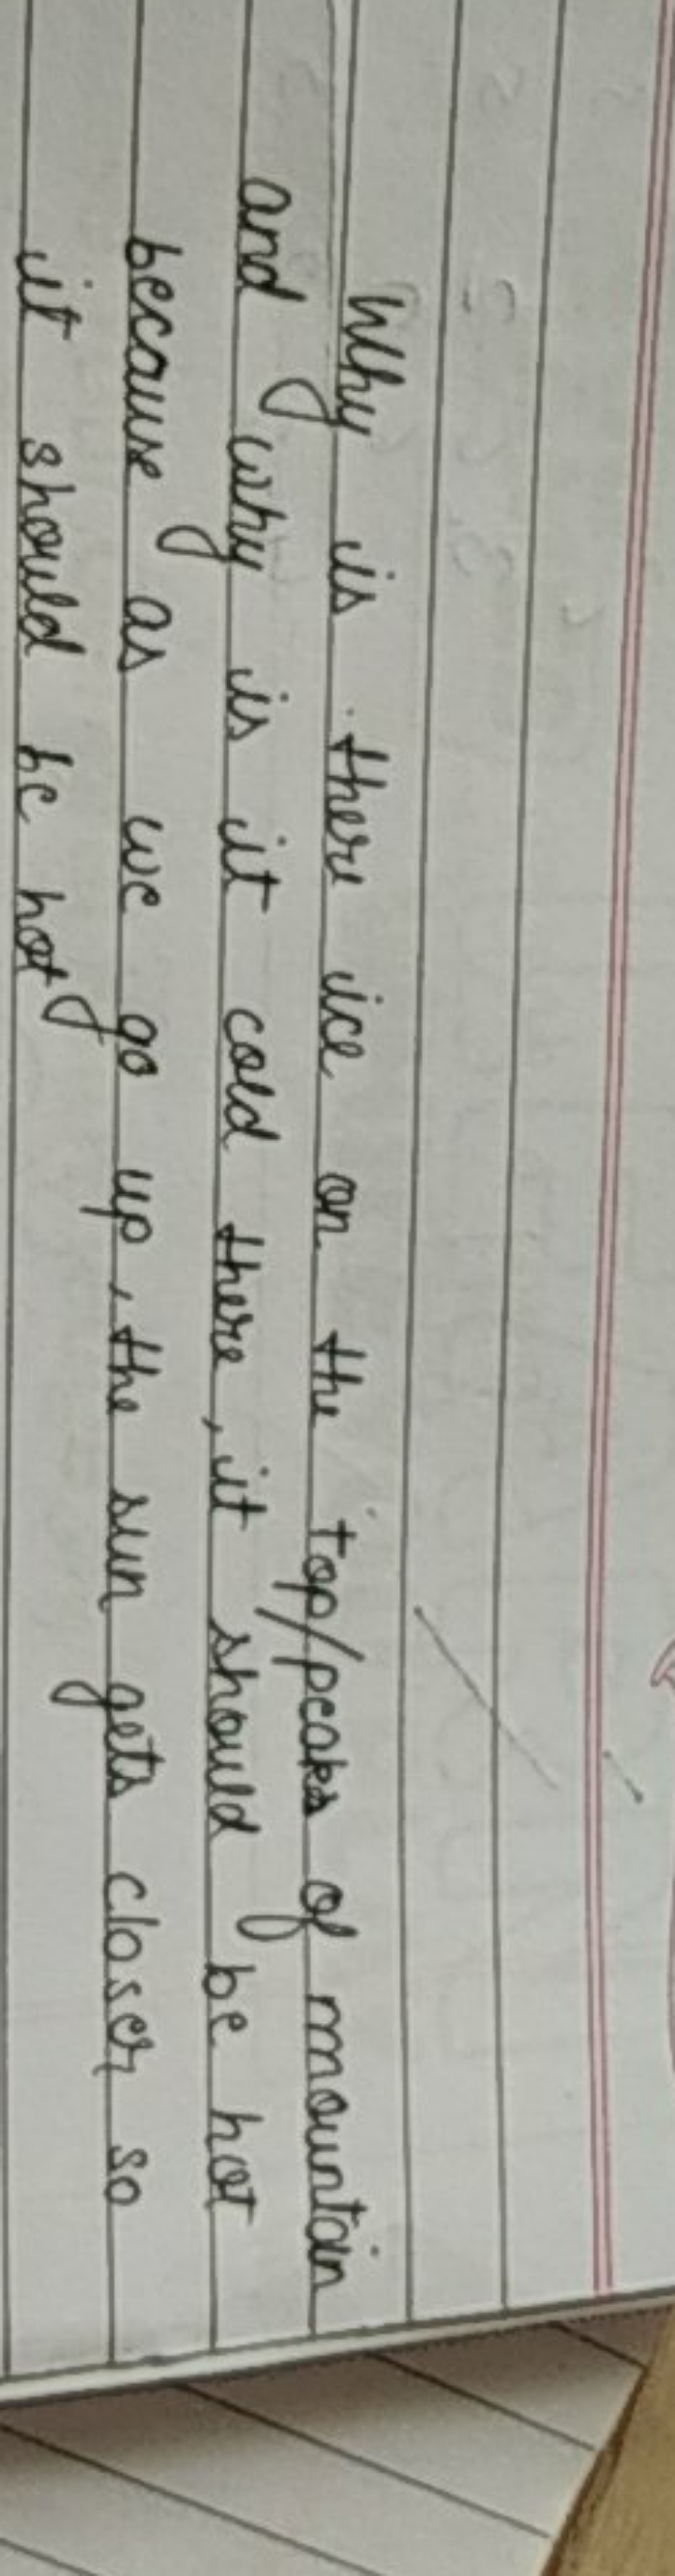 Why is there ice on the top/peaks of mountain
and why is it cold there, it should be hot
because as we go up, the sun gets closer so
it should be hot